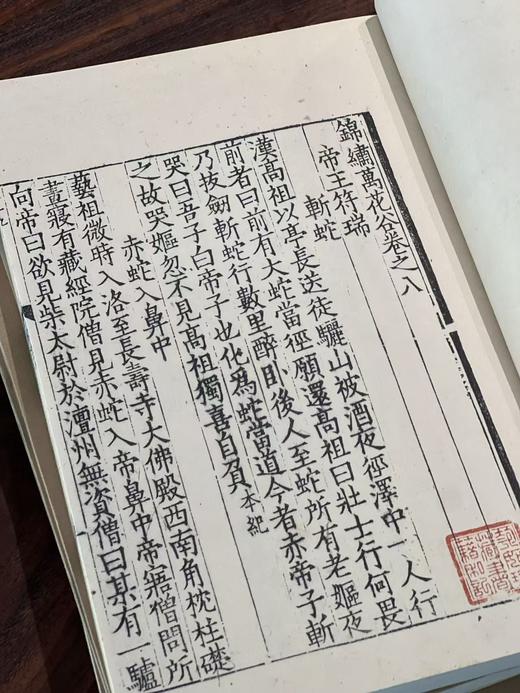 錦繡萬花谷卷之八
帝王符瑞
斬蛇
漢高祖以亭長送徒驪山被酒夜徑澤中一人行
前者曰前有大蛇當徑願還高祖曰壯士行何畏
乃拔劒斬蛇行數里醉卧後人至蛇所有老嫗夜
哭曰吾子白帝子也化爲蛇當道今者赤帝子斬
之故哭嫗忽不見高祖獨喜自負本紀
赤蛇入鼻中
藝祖微時入洛至長壽寺大佛殿西南角枕柱礎
晝寢有藏經院僧見赤蛇入帝鼻中帝寤僧問所
向帝曰欲見柴太尉於澶州無資僧曰某有一驢